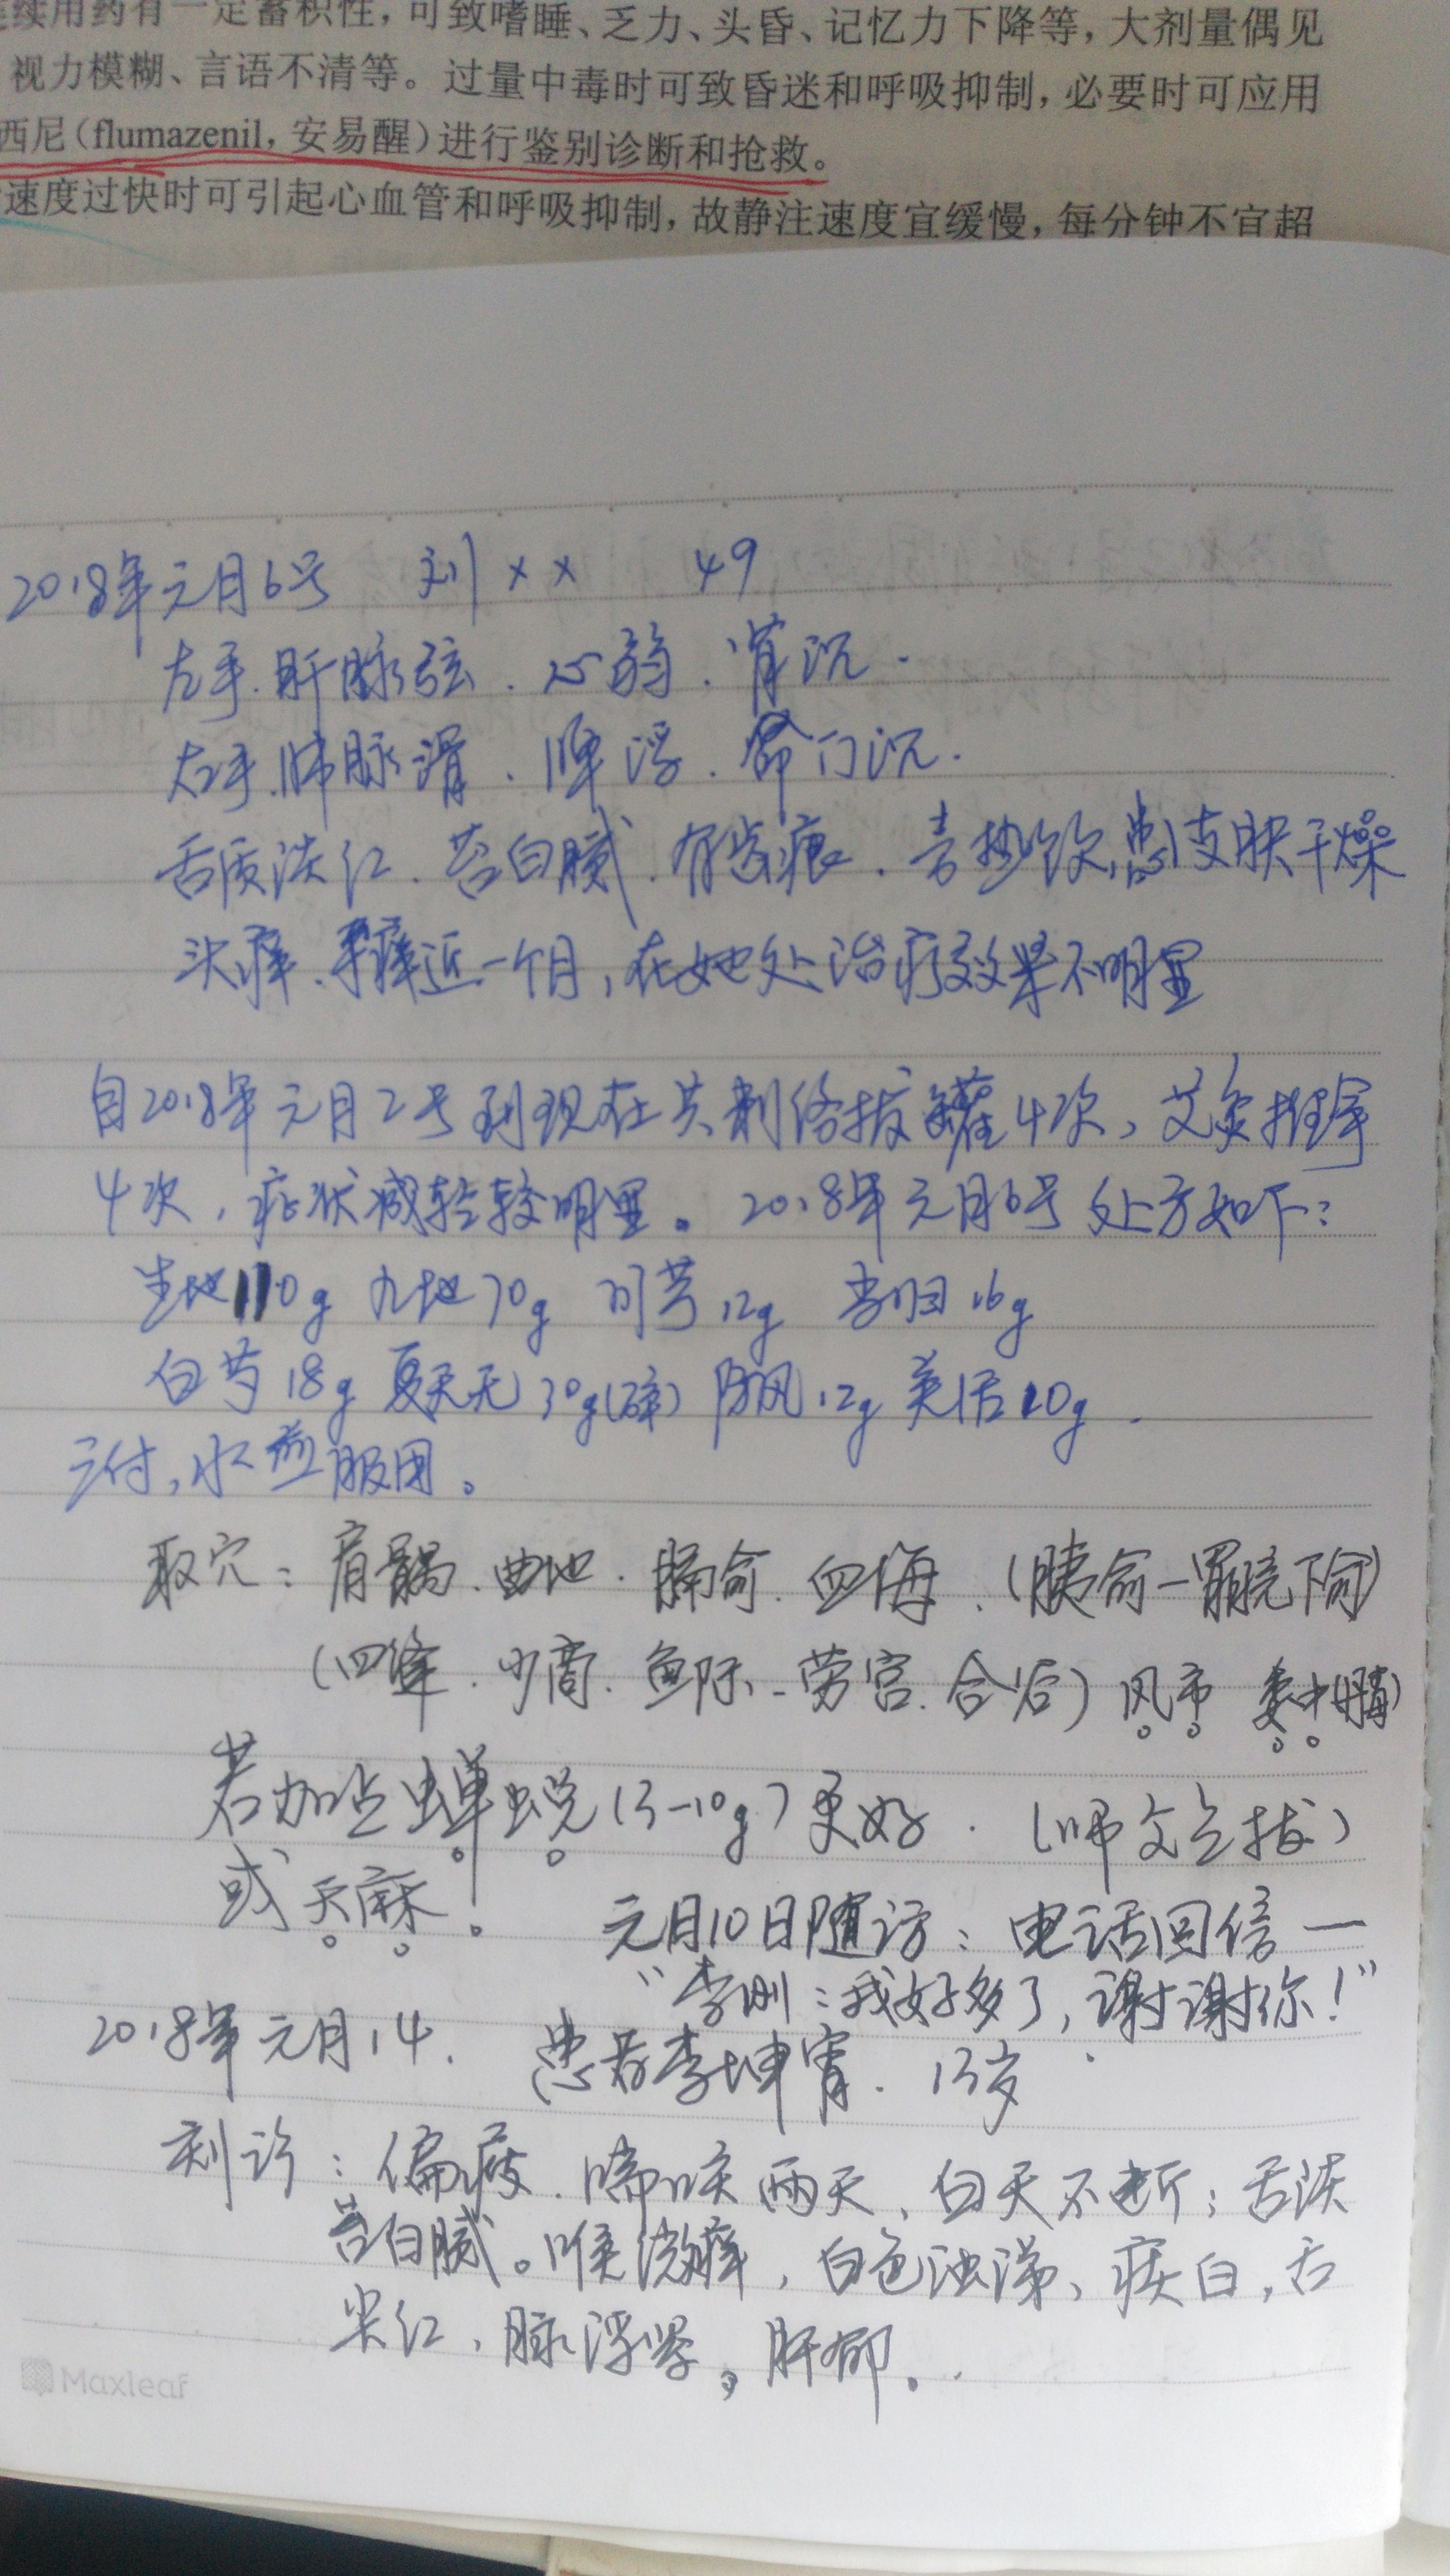 续用药有一定蓄积性，可致嗜睡、乏力、头昏、记忆力下降等，大剂量偶见
视力模糊、言语不清等。过量中毒时可致昏迷和呼吸抑制，必要时可应用
西尼（flumazenil，安易醒）进行鉴别诊断和抢救。
速度过快时可引起心血管和呼吸抑制，故静注速度宜缓慢，每分钟不宜超
2018年元月6号 刘×× 49
左手.肝脉弦.心弱.肾沉.
右手.肺脉滑.脾浮.命门沉.
舌质淡红.苔白腻.有齿痕.喜热饮,患皮肤干燥
头痒、手痒近一个月，在她处治疗效果不明显
自2018年元月2号到现在共刺络拔罐4次，艾灸推拿
4次，症状减轻较明显。2018年元月6号处方如下：
生地110g 九地70g 川芎12g 当归16g
白芍18g 夏天无30g(碎) 防风12g 羌活10g.
三付，水煎服用。
取穴：肩髃.曲池.膈俞.血海.(胰俞—胃脘下俞)
(四缝.少商.鱼际.劳宫.合谷) 风市 委中
若加点蝉蜕(3-10g)更好.(师文点拔)
或天麻!。
元月10日随访：电话回信—
“李刚：我好多了，谢谢你！”
2018年元月14. 患者李坤霄.13岁
刻诊：偏瘦.啼咳两天，白天不断；舌淡
苔白腻。喉微痒，白色浊涕、痰白，舌
尖红，脉浮紧。肝郁。
Maxleaf